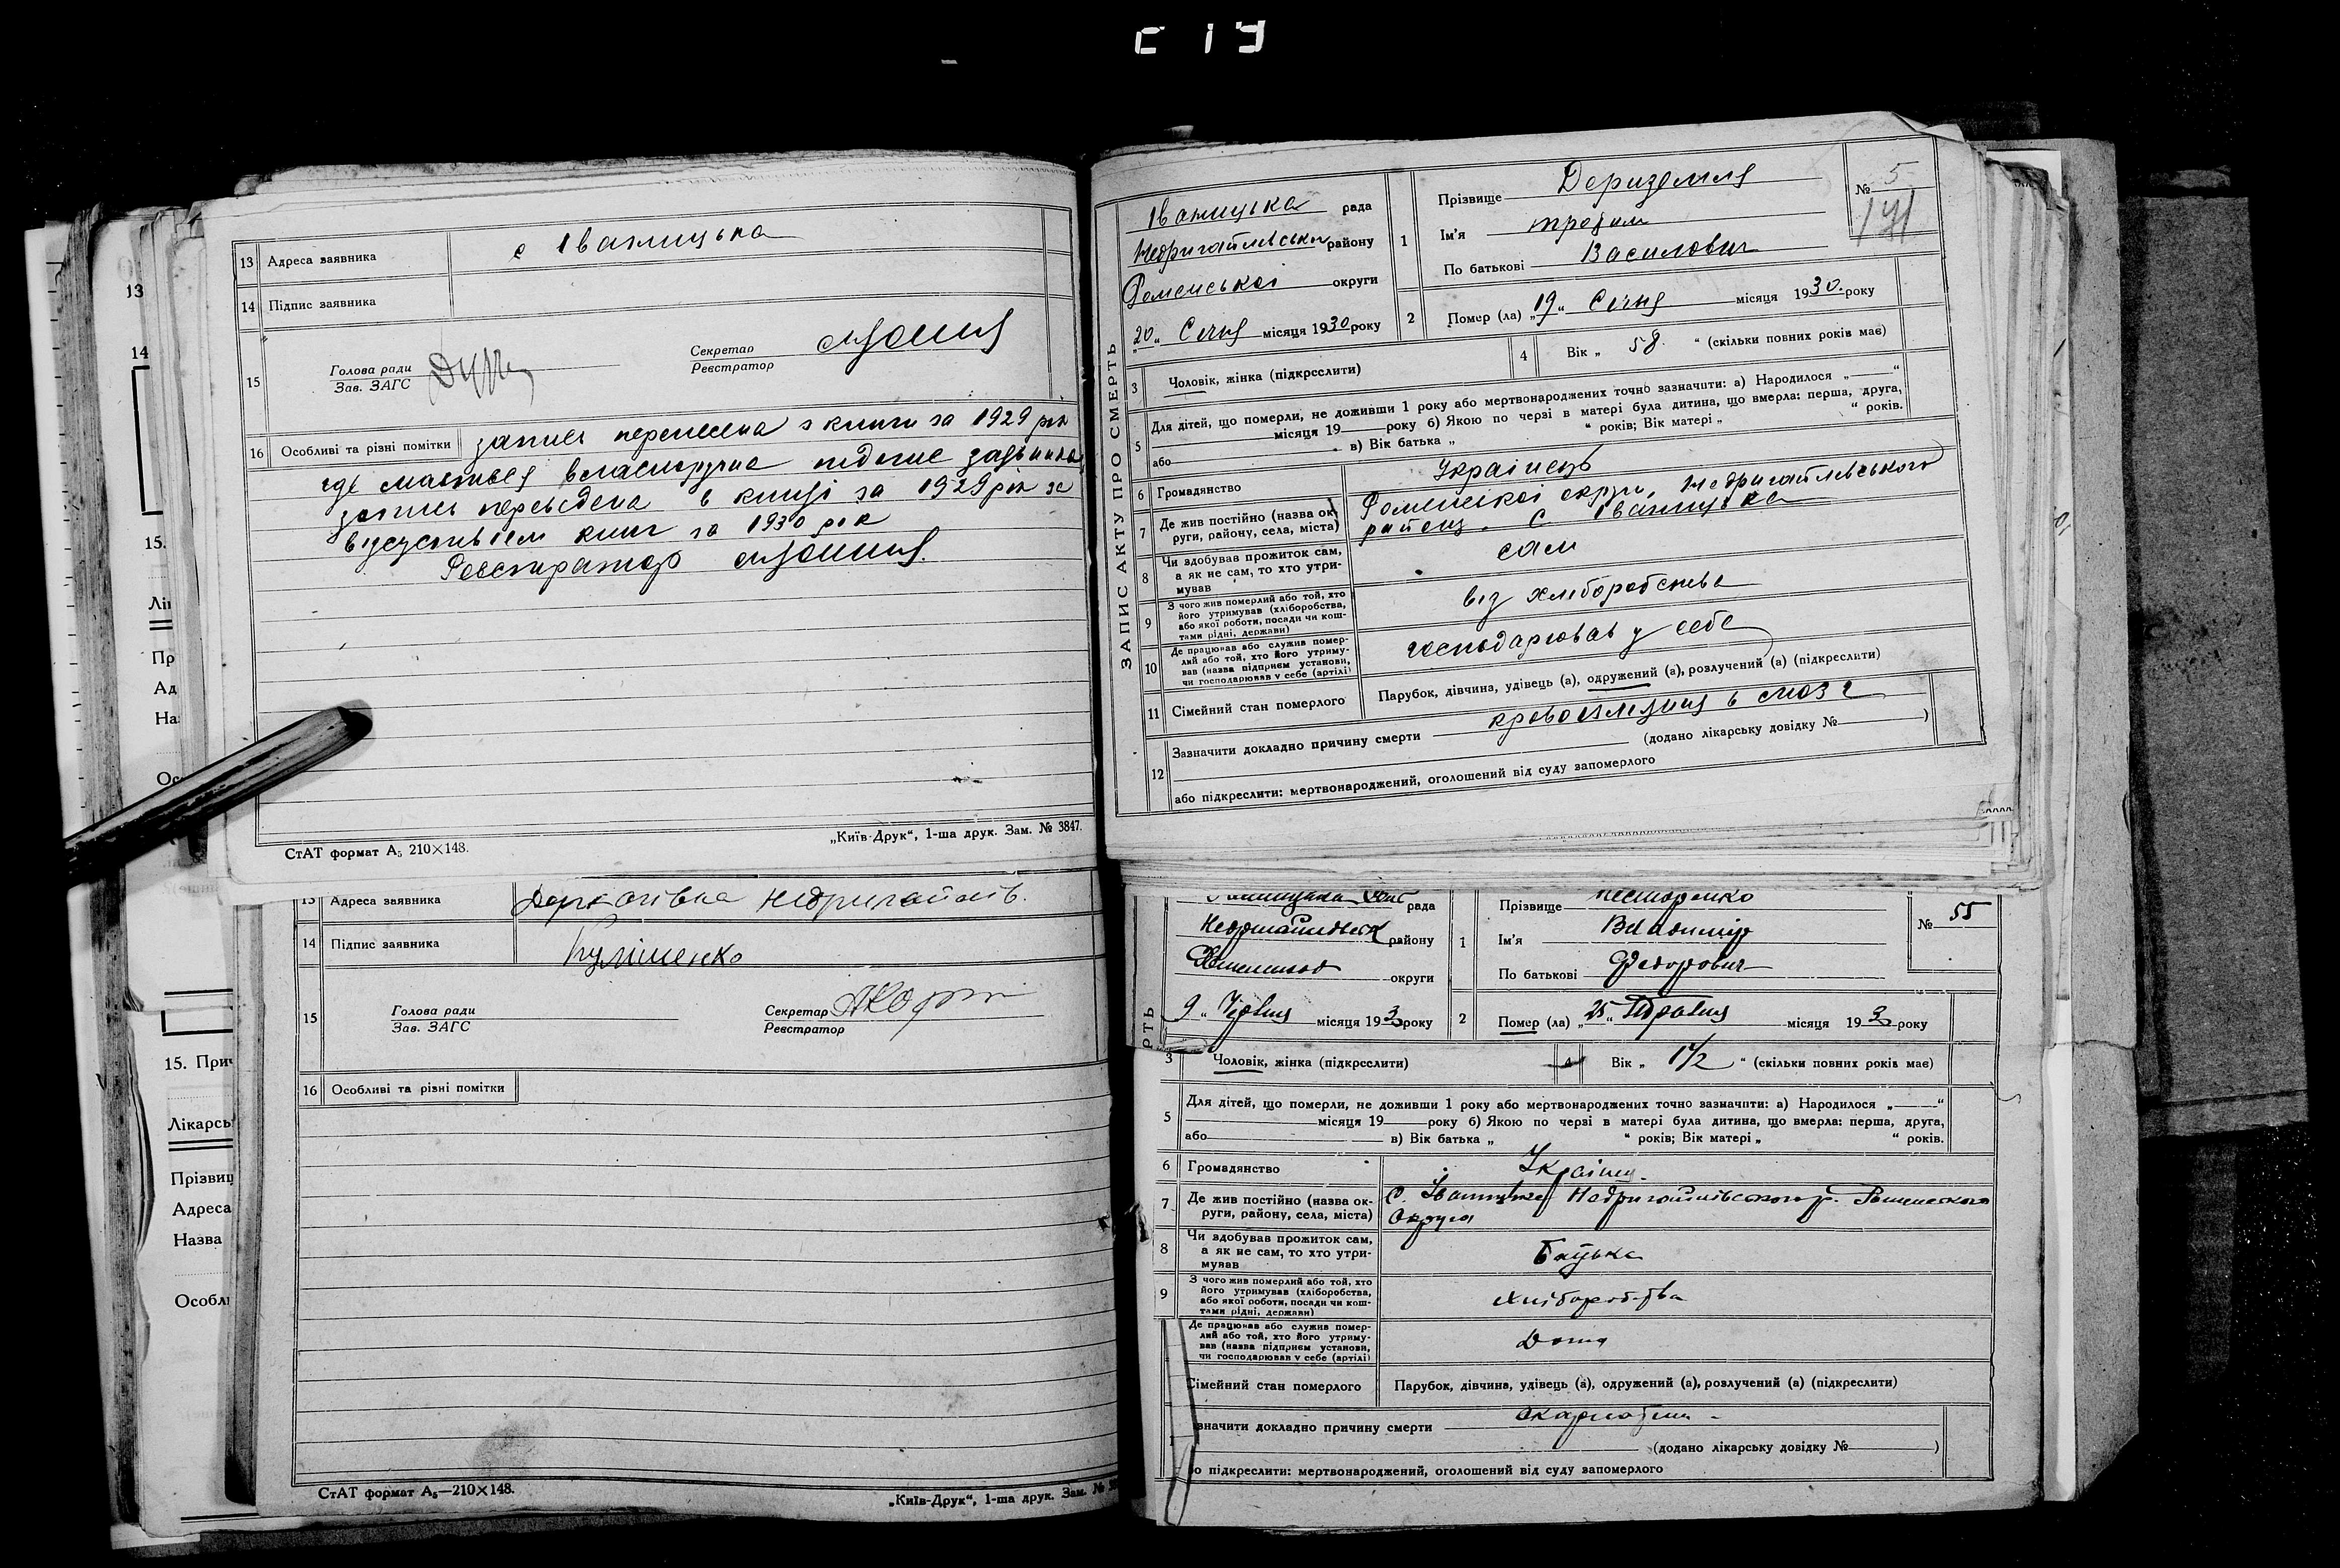 13 Адреса заявника с Іваницька
14 Підпис заявника
15 Голова ради
Зав. ЗАГС
Секретар
Реєстратор
16 Особливі та різні помітки запись перенесена з книги за 1929 рік
где мається власноручне подпис заявника
запись переведена в книзі за 1929 рік за
відсуствієм книг за 1930 рік
Реєстратор
СтАТ формат А₅ 210×148.
„Київ-Друк“, 1-ша друк. Зам. № 3847.
13 Адреса заявника Деркачівка Недригайлів.
14 Підпис заявника Куліменко
15 Голова ради
Зав. ЗАГС
Секретар
Реєстратор
16 Особливі та різні помітки
СтАТ формат А₅—210×148.
„Київ-Друк“, 1-ша друк. Зам. №
13
14
15.
Лі
Пр
Ад
На
Ос
15. При
Лікарсь
Прізвищ
Адреса
Назва
Особл
ЗАПИС АКТУ ПРО СМЕРТЬ
Іваницька рада
Недригайлівська району
Роменської округи
„20„ Січня місяця 1930 року
1 Прізвище Деризємля
Ім'я Трофим
По батькові Василович
№ 5
141
2 Помер (ла) „19„ Січня місяця 1930. року
3 Чоловік, жінка (підкреслити)
4 Вік „ 58 “ (скільки повних років має)
5 Для дітей, що померли, не доживши 1 року або мертвонароджених точно зазначити: а) Народилося „ “
місяця 19 року б) Якою по черзі в матері була дитина, що вмерла: перша, друга,
або в) Вік батька „ “ років; Вік матері „ “ років.
6 Громадянство Українець
7 Де жив постійно (назва округи, району, села, міста) Роменської округи, Недригайлівського
району. с Іваницька
8 Чи здобував прожиток сам, а як не сам, то хто утримував сам
9 З чого жив померлий або той, хто його утримував (хліборобства, або якої роботи, посади чи коштами рідні, держави) від хліборобства
10 Де працював або служив померлий або той, хто його утримував (назва підприєм установи, чи господарював у себе (артілі) господарював у себе
11 Сімейний стан померлого Парубок, дівчина, удівець (а), одружений (а), розлучений (а) (підкреслити)
12 Зазначити докладно причину смерти кровоізлеяния в мозг
(додано лікарську довідку № )
або підкреслити: мертвонароджений, оголошений від суду запомерлого
рада
району
округи
9 „ Червня місяця 193 року
1 Прізвище Несторенко
Ім'я Владимир
По батькові Федорович
№ 55
2 Помер (ла) „25„ Травня місяця 193 року
РТЬ
3 Чоловік, жінка (підкреслити)
4 Вік „ 1½ “ (скільки повних років має)
5 Для дітей, що померли, не доживши 1 року або мертвонароджених точно зазначити: а) Народилося „ “
місяця 19 року б) Якою по черзі в матері була дитина, що вмерла: перша, друга,
або в) Вік батька „ “ років; Вік матері „ “ років.
6 Громадянство Україн.
7 Де жив постійно (назва округи, району, села, міста) С. Іваниця Недригайлівського р. Роменского
Округа
8 Чи здобував прожиток сам, а як не сам, то хто утримував Батько
9 З чого жив померлий або той, хто його утримував (хліборобства, або якої роботи, посади чи коштами рідні, держави) хліборобства
Де працював або служив померлий або той, хто його утримував (назва підприєм установи, чи господарював у себе (артілі) Дома
Сімейний стан померлого Парубок, дівчина, удівець (а), одружений (а), розлучений (а) (підкреслити)
значити докладно причину смерти Скарлатина
(додано лікарську довідку № )
о підкреслити: мертвонароджений, оголошений від суду запомерлого